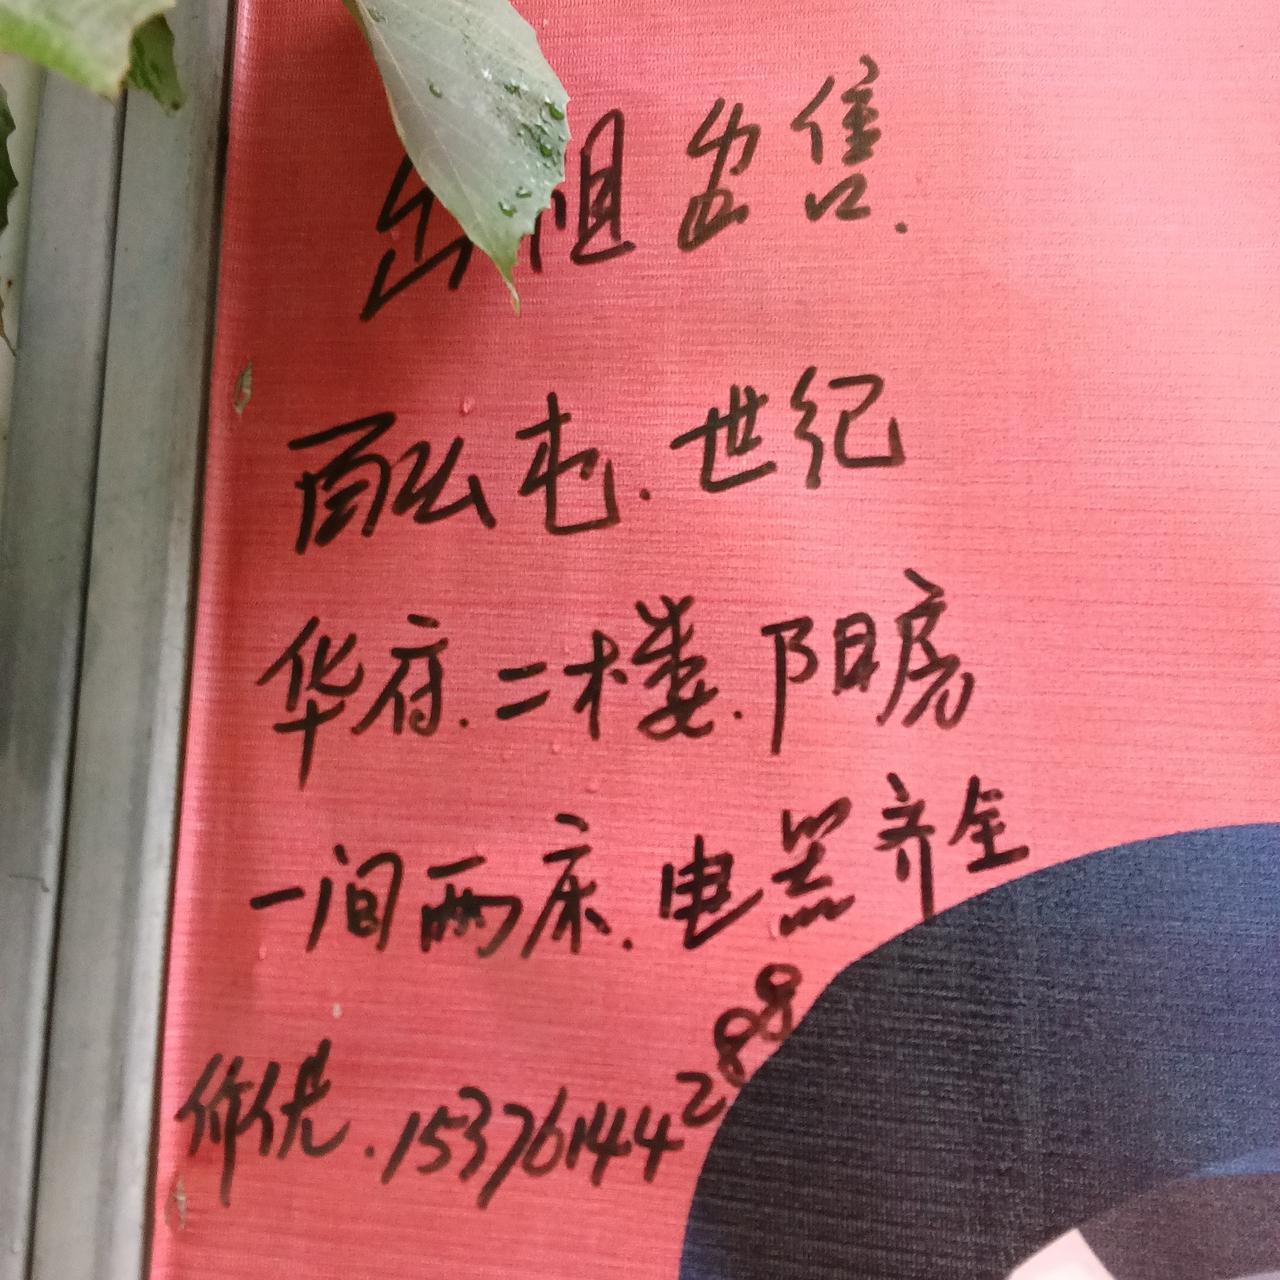 出租出售.
西弘屯.世纪
华府.二楼.阳房
一间两床.电器齐全
价优.15376144288